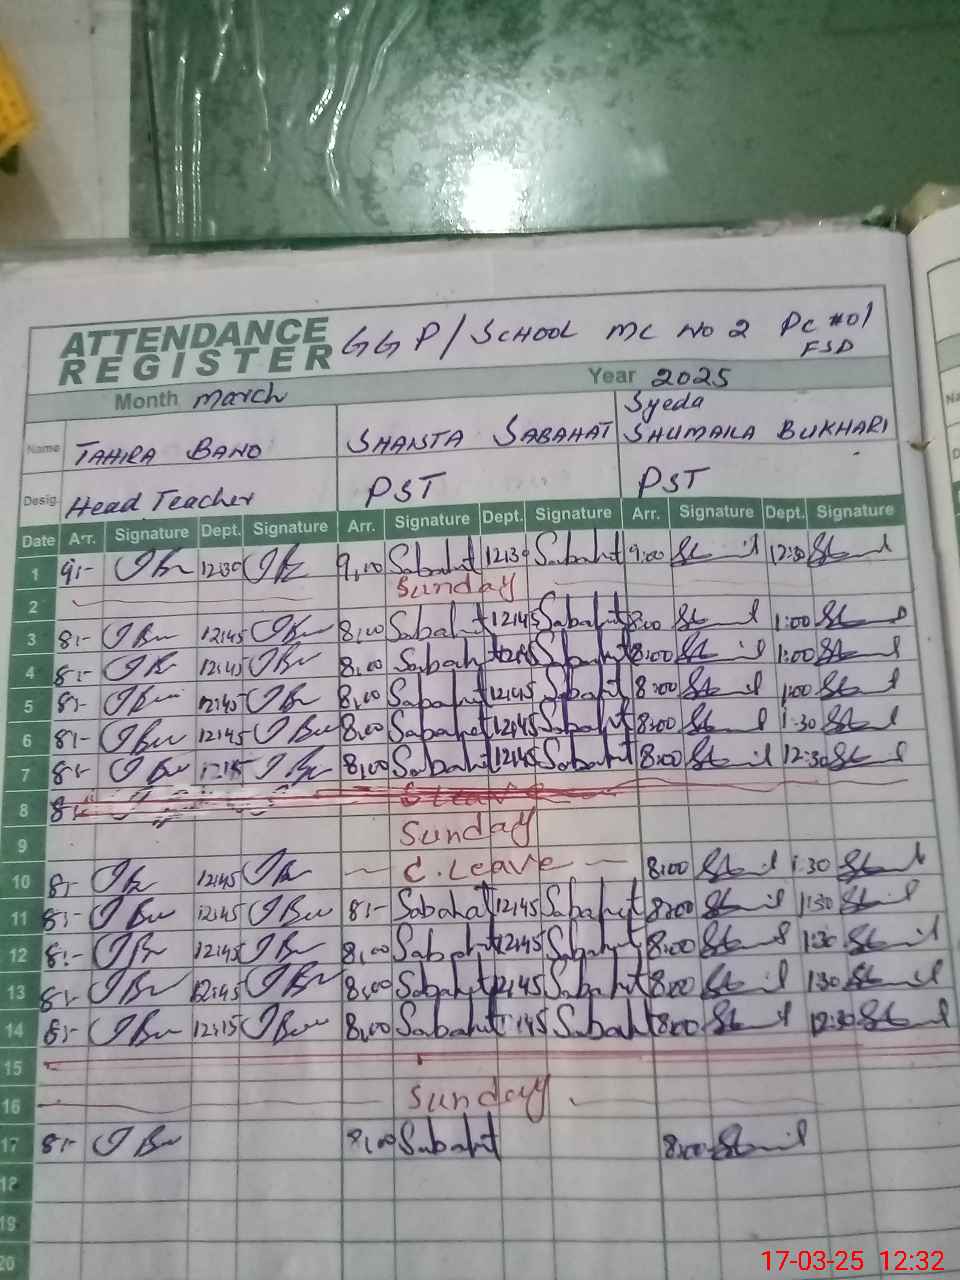 ATTENDANCE REGISTER GGP/SCHOOL MC NO 2 PC #01
FSD
Month March Year 2025
Name TAHIRA BANO SHAISTA SABAHAT Syeda SHUMAILA BUKHARI
Desig. Head Teacher PST PST
Date Arr. Signature Dept. Signature Arr. Signature Dept. Signature Arr. Signature Dept. Signature
1 9:- 12:30 9,00 Sabahat 12:30 Sabahat 9:00 12:30
2 Sunday
3 8:- 12:45 8,00 Sabahat 12:45 Sabahat 8:00 1:00
4 8:- 12:45 8,00 Sabahat Sabahat 8:00 1:00
5 8:- 12:45 8,00 Sabahat 12:45 Sabahat 8:00 1:00
6 8:- 12:45 8,00 Sabahat 12:45 Sabahat 8:00 1:30
7 8:- 12:45 8,00 Sabahat 12:45 Sabahat 8:00 12:30
8
9 Sunday
10 8:- 12:45 C. Leave 8:00 1:30
11 8:- 12:45 8:- Sabahat 12:45 Sabahat 8:00 1:30
12 8:- 12:45 8,00 Sabahat 12:45 Sabahat 8:00 1:30
13 8:- 12:45 8,00 Sabahat 12:45 Sabahat 8:00 1:30
14 8:- 8,00 Sabahat Sabahat 8:00 12:30
15
16 Sunday
17 8:- 8,00 Sabahat 8:00
18
19
20
17-03-25 12:32